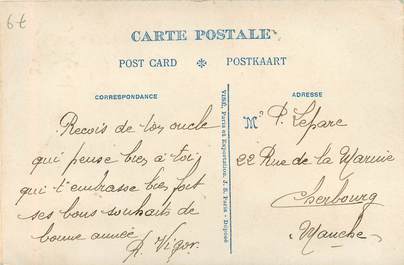 6€
CARTE POSTALE
POST CARD ❉ POSTKAART
CORRESPONDANCE
Recois de ton oncle
qui pense bien à toi
qui t'embrasse bien fort
ses bons souhaits de
bonne année
P. Vigor.
VISÉ, Paris et Exportation. J. S. Paris - Déposé
ADRESSE
Mr P. Lepare
22 Rue de la Marine
Cherbourg
Manche